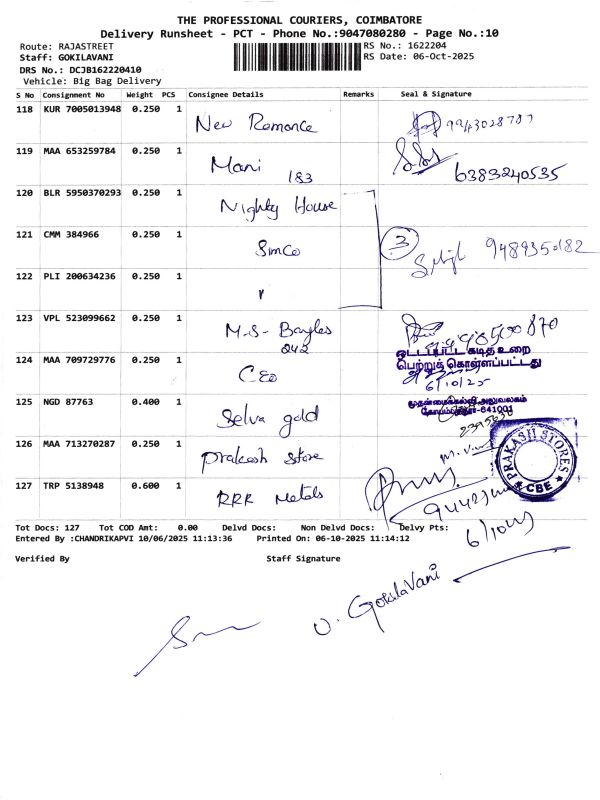 THE PROFESSIONAL COURIERS, COIMBATORE
Delivery Runsheet - PCT - Phone No.:9047080280 - Page No.:10
Route: RAJASTREET
RS No.: 1622204
Staff: GOKILAVANI
RS Date: 06-Oct-2025
DRS No.: DCJB162220410
Vehicle: Big Bag Delivery
S No Consignment No Weight PCS Consignee Details Remarks Seal & Signature
118 KUR 7005013948 0.250 1 New Romance
119 MAA 653259784 0.250 1 Mani 183 6383240535
120 BLR 5950370293 0.250 1 Nighty House
121 CMM 384966 0.250 1 Simco 3
122 PLI 200634236 0.250 1 "
123 VPL 523099662 0.250 1 M.S- Bangles 242
ஒட்டப்பட்ட கடித உறை
பெற்றுக் கொள்ளப்பட்டது
124 MAA 709729776 0.250 1 CEO 6/10/25
முதன்மைக்கல்வி அலுவலகம்
125 NGD 87763 0.400 1 Selva gold
126 MAA 713270287 0.250 1 Prakash Store
PRAKASH STORES
CBE
127 TRP 5138948 0.600 1 RRR Metals
Tot Docs: 127 Tot COD Amt: 0.00 Delvd Docs: Non Delvd Docs: Delvy Pts:
Entered By :CHANDRIKAPVI 10/06/2025 11:13:36 Printed On: 06-10-2025 11:14:12
Verified By Staff Signature
U. GokilaVani